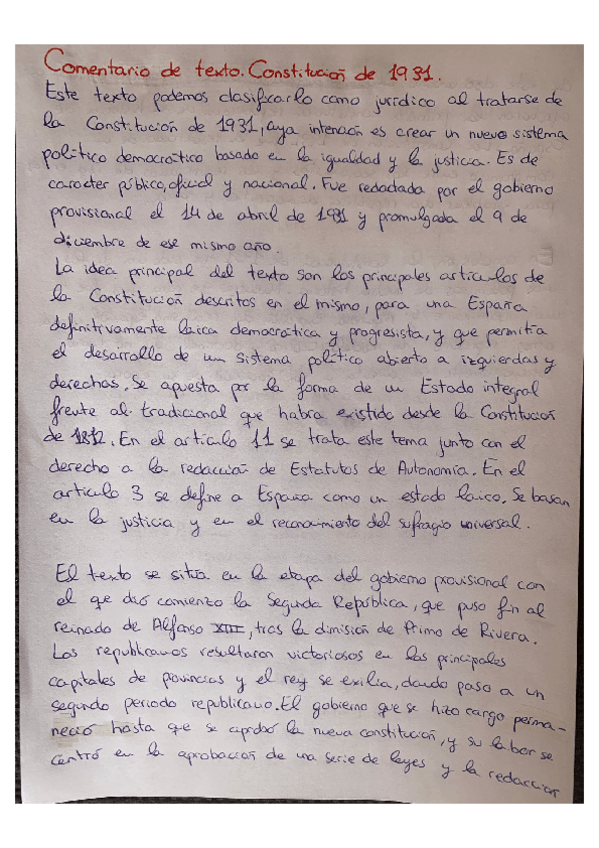 Comentario de texto. Constitución de 1931.
Este texto podemos clasificarlo como jurídico al tratarse de
la Constitución de 1931, cuya intención es crear un nuevo sistema
político democrático basado en la igualdad y la justicia. Es de
caracter público, oficial y nacional. Fue redactada por el gobierno
provisional el 14 de abril de 1931 y promulgada el 9 de
diciembre de ese mismo año.
La idea principal del texto son los principales artículos de
la Constitución descritos en el mismo, para una España
definitivamente laica democrática y progresista, y que permitía
el desarrollo de un sistema político abierto a izquierdas y
derechas. Se apuesta por la forma de un Estado integral
frente al tradicional que habra existido desde la Constitución
de 1812. En el artículo 11 se trata este tema junto con el
derecho a la redacción de Estatutos de Autonomía. En el
artículo 3 se define a España como un estado laico. Se basan
en la justicia y en el reconocimiento del sufragio universal.
El texto se sitúa en la etapa del gobierno provisional con
el que dió comienzo la Segunda República, que puso fin al
reinado de Alfonso XIII, tras la dimisión de Primo de Rivera.
Los republicanos resultaron victoriosos en las principales
capitales de provincias y el rey se exilia, dando paso a un
segundo periodo republicano. El gobierno que se hizo cargo perma-
neció hasta que se aprobó la nueva constitución, y su labor se
centró en la aprobación de una serie de leyes y la redacción